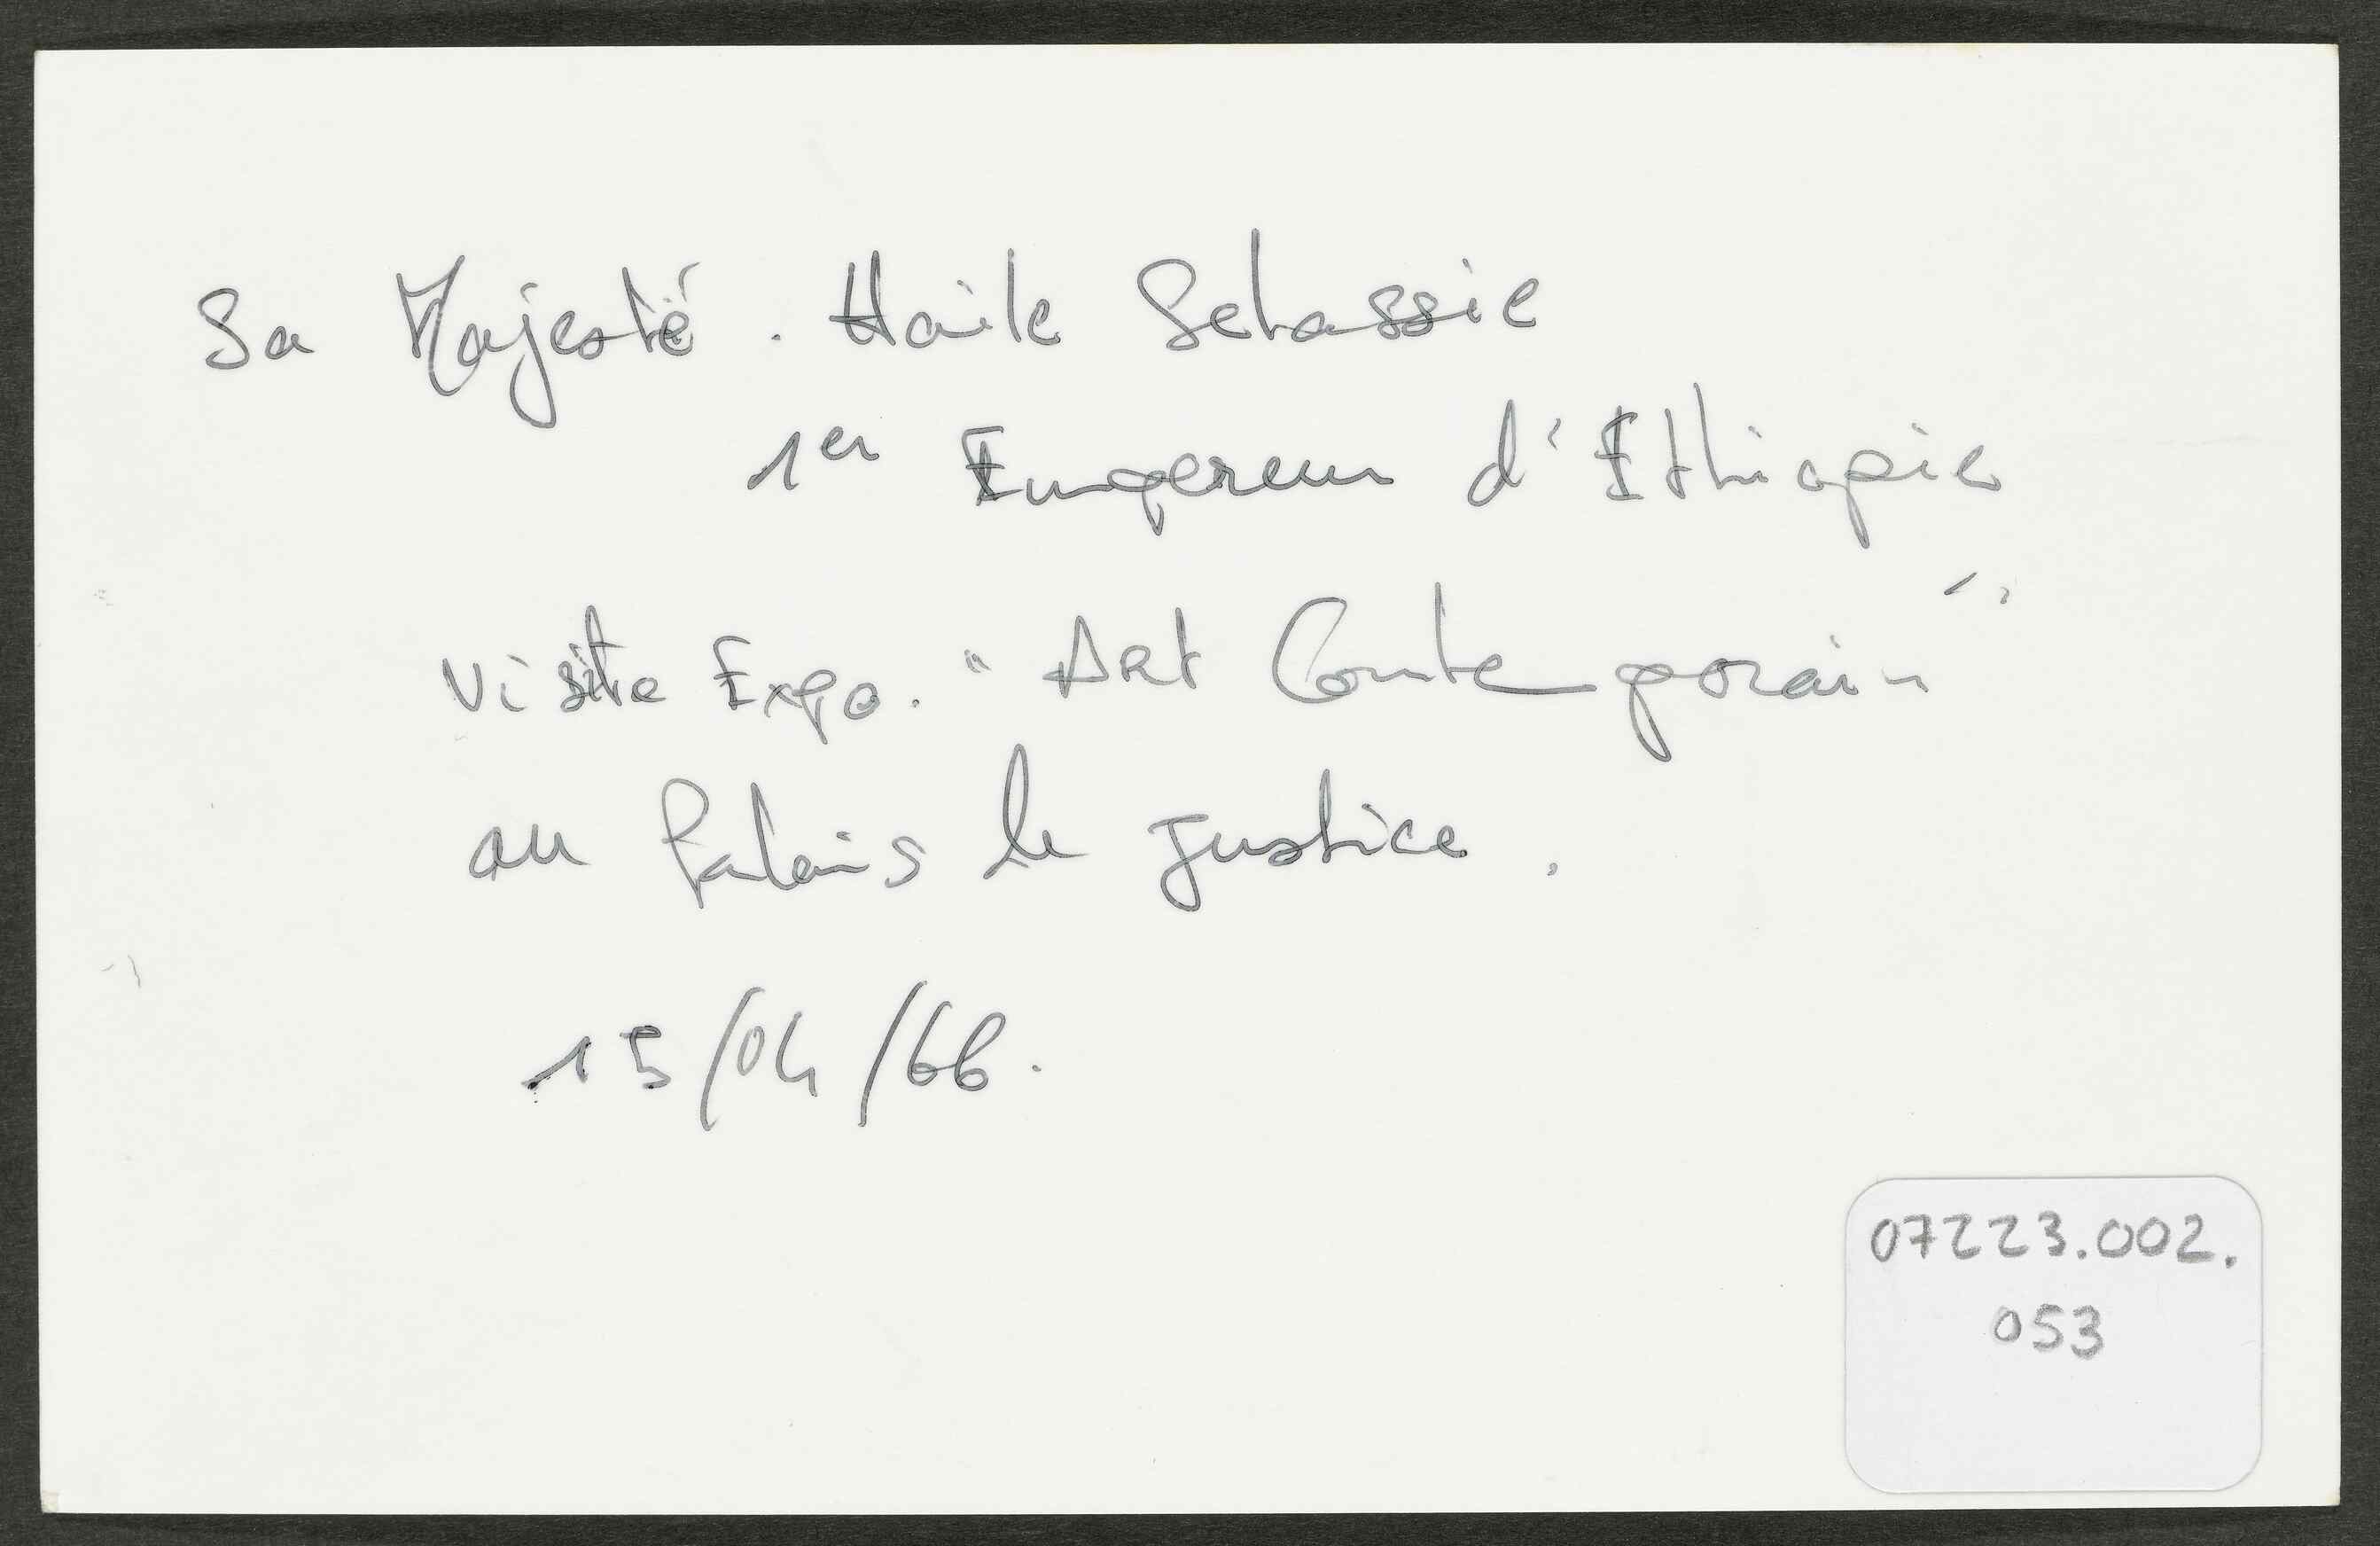 Sa Majesté. Haile Selassie
1er Empereur d'Ethiopie
visite Expo. "Art Contemporain"
au Palais de Justice.
15/04/66.
07223.002.
053